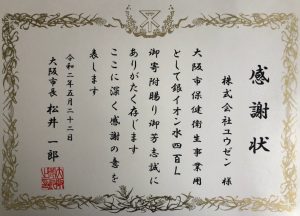 感謝状
株式会社ユウゼン 様
大阪市保健衛生事業用
として銀イオン水四百L
御寄附賜り御芳志に
ありがたく存じます
ここに深く感謝の意を
表します
令和二年五月二十二日
大阪市長 松井 一郎